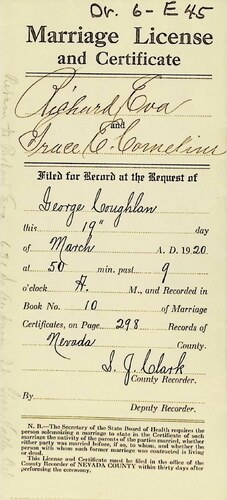 Dr. 6-E 45
Marriage License
and Certificate
Richard Eva
and
Grace E. Cornelius
Filed for Record at the Request of
George Coughlan
this 19" day
of March A. D. 1920
at 50 min. past 9
o'clock A. M., and Recorded in
Book No. 10 of Marriage
Certificates, on Page 298 Records of
Nevada County.
S. J. Clark
County Recorder.
By
Deputy Recorder.
N. B.—The Secretary of the State Board of Health requires the
person solemnizing a marriage to state in the Certificate of such
marriage the nativity of the parents of the parties married, whether
either party was married before, if so, to whom, and whether the
person with whom such former marriage was contracted is living
or dead.
This License and Certificate must be filed in the office of the
County Recorder of NEVADA COUNTY within thirty days after
performing the ceremony.